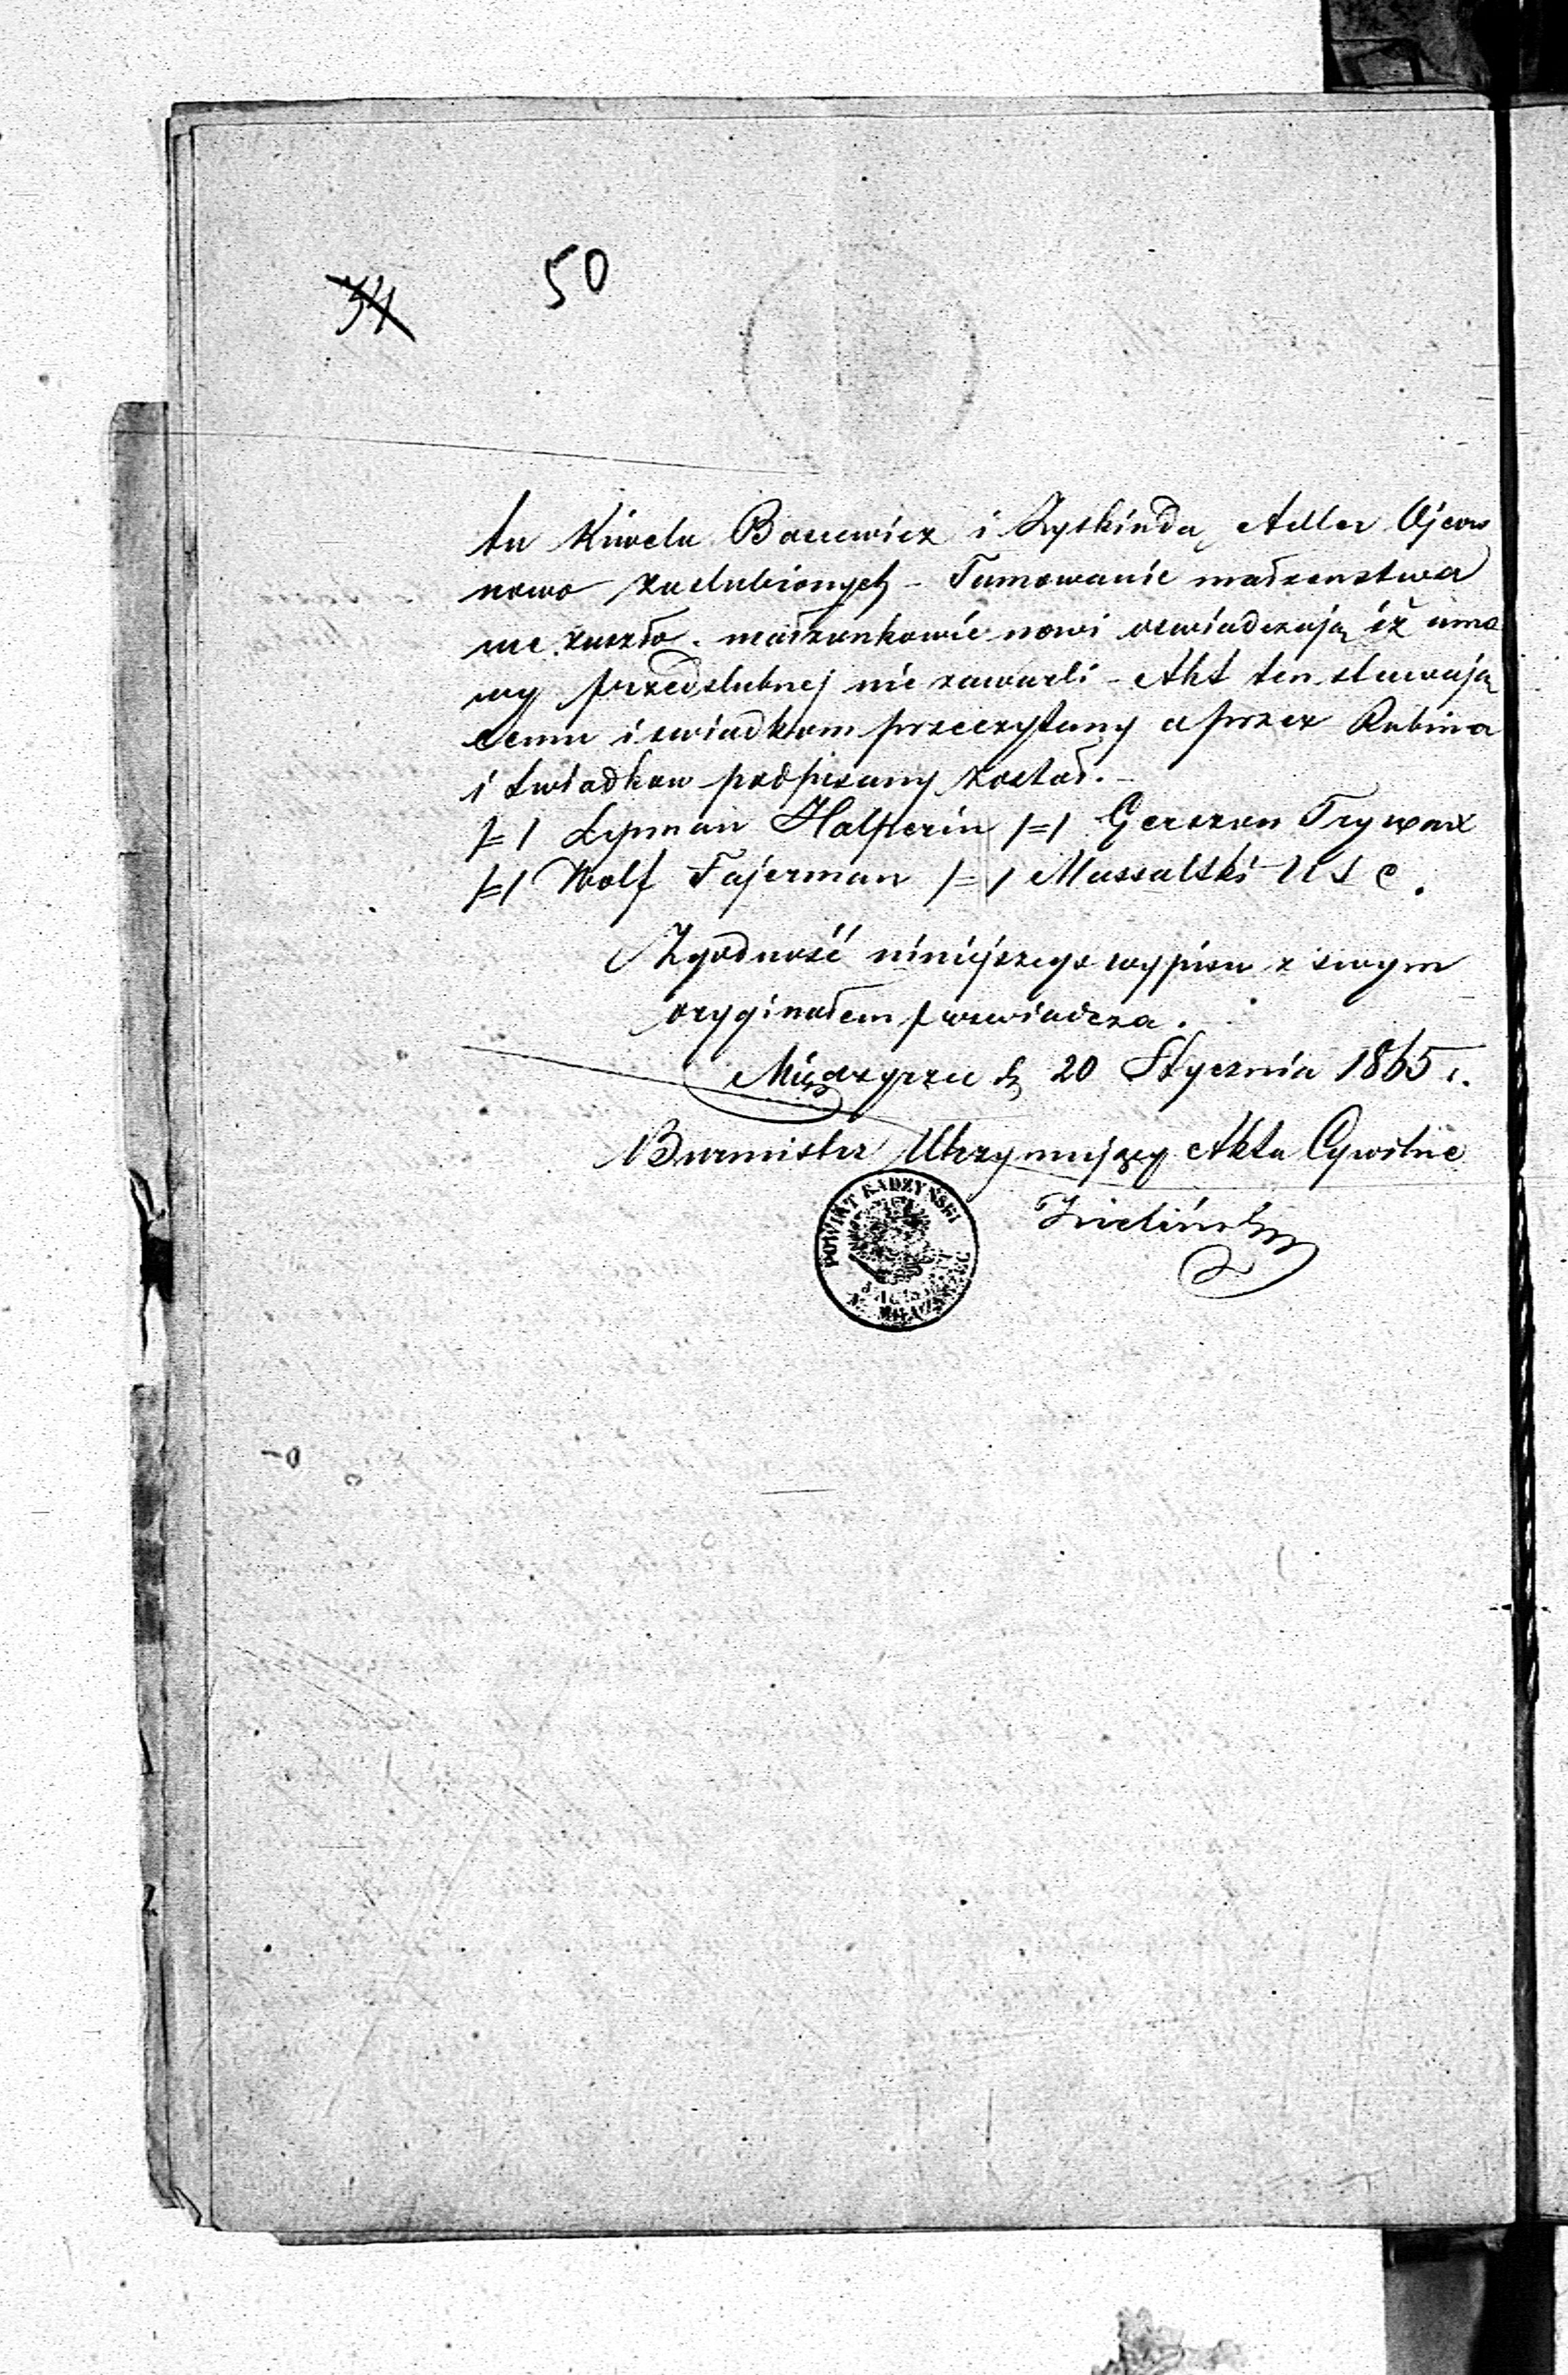 50
34
tu Kiwelu Bacewicz i Zyskinda Adler Ojców
nowo zaslubionych – Tamowanie małzenstwa
nie zaszło. małzonkowie nowi oswiadczają iż umo
wy przedslubnej nie zawarli – Akt ten stawają
cemu i swiadkom przeczytany a przez Rabina
i Swiadkow podpisany został. –
/=/ Lypman Halperin /=/ Gerszon Trywax
/=/ Wolf Fajerman /=/ Massalski U S C.
Zgodność niniejszego wypisu z swym
oryginałem poswiadcza.
Międzyrzec d. 20 Stycznia 1865 r.
Burmistrz Utrzymujący Akta Cywilne
Zieliński
POWIAT RADZYŃSKI